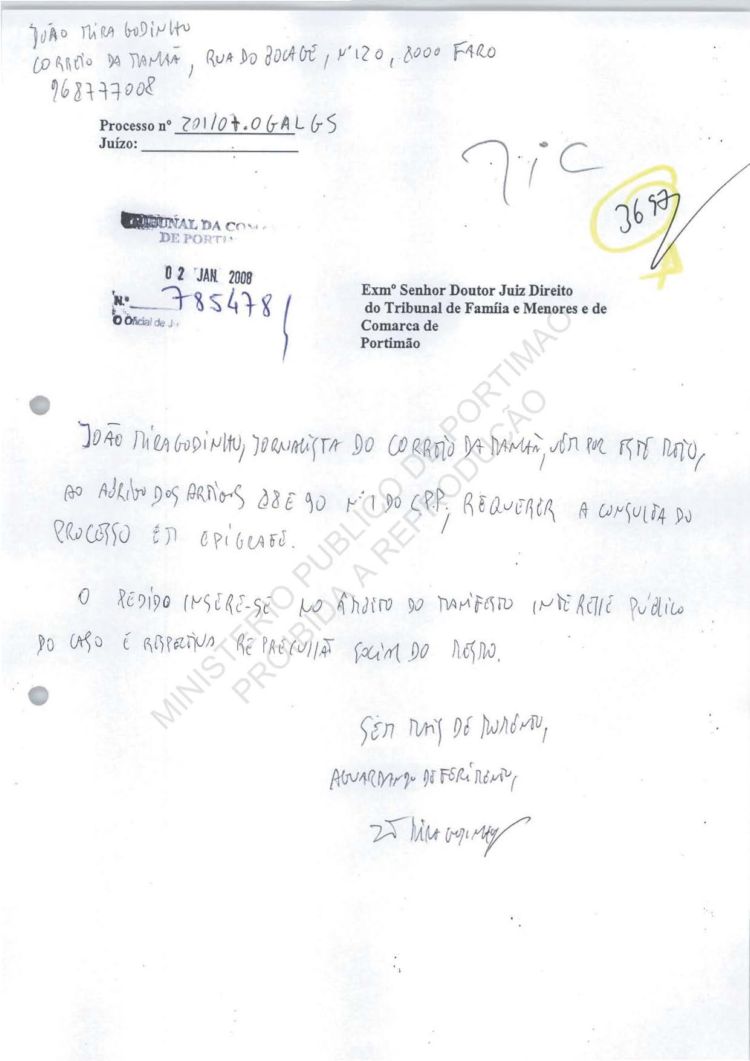 JOÃO MIRA GODINHO
CORREIO DA MANHÃ, RUA DO BOCAGE, Nº 120, 8000 FARO
968777008
Processo nº 201/07.0GALGS
Juízo:
JIC
3697
TRIBUNAL DA COM
DE PORTI
02 JAN. 2008
N.º 785478
O Oficial de J
Exmº Senhor Doutor Juiz Direito
do Tribunal de Famíia e Menores e de
Comarca de
Portimão
JOÃO MIRA GODINHO, JORNALISTA DO CORREIO DA MANHÃ, VEM POR ESTE MEIO,
AO ABRIGO DOS ARTIGOS 88 E 90 Nº1 DO CPP, REQUERER A CONSULTA DO
PROCESSO EM EPÍGRAFE.
O PEDIDO INSERE-SE NO ÂMBITO DO MANIFESTO INTERESSE PÚBLICO
DO CASO E RESPECTIVA REPERCUSSÃO SOCIAL DO MESMO.
SEM MAIS DE MOMENTO,
AGUARDANDO DEFERIMENTO,
MIRA GODINHO
MINISTÉRIO PUBLICO DE PORTIMAO
PROIBIDA A REPRODUÇÃO